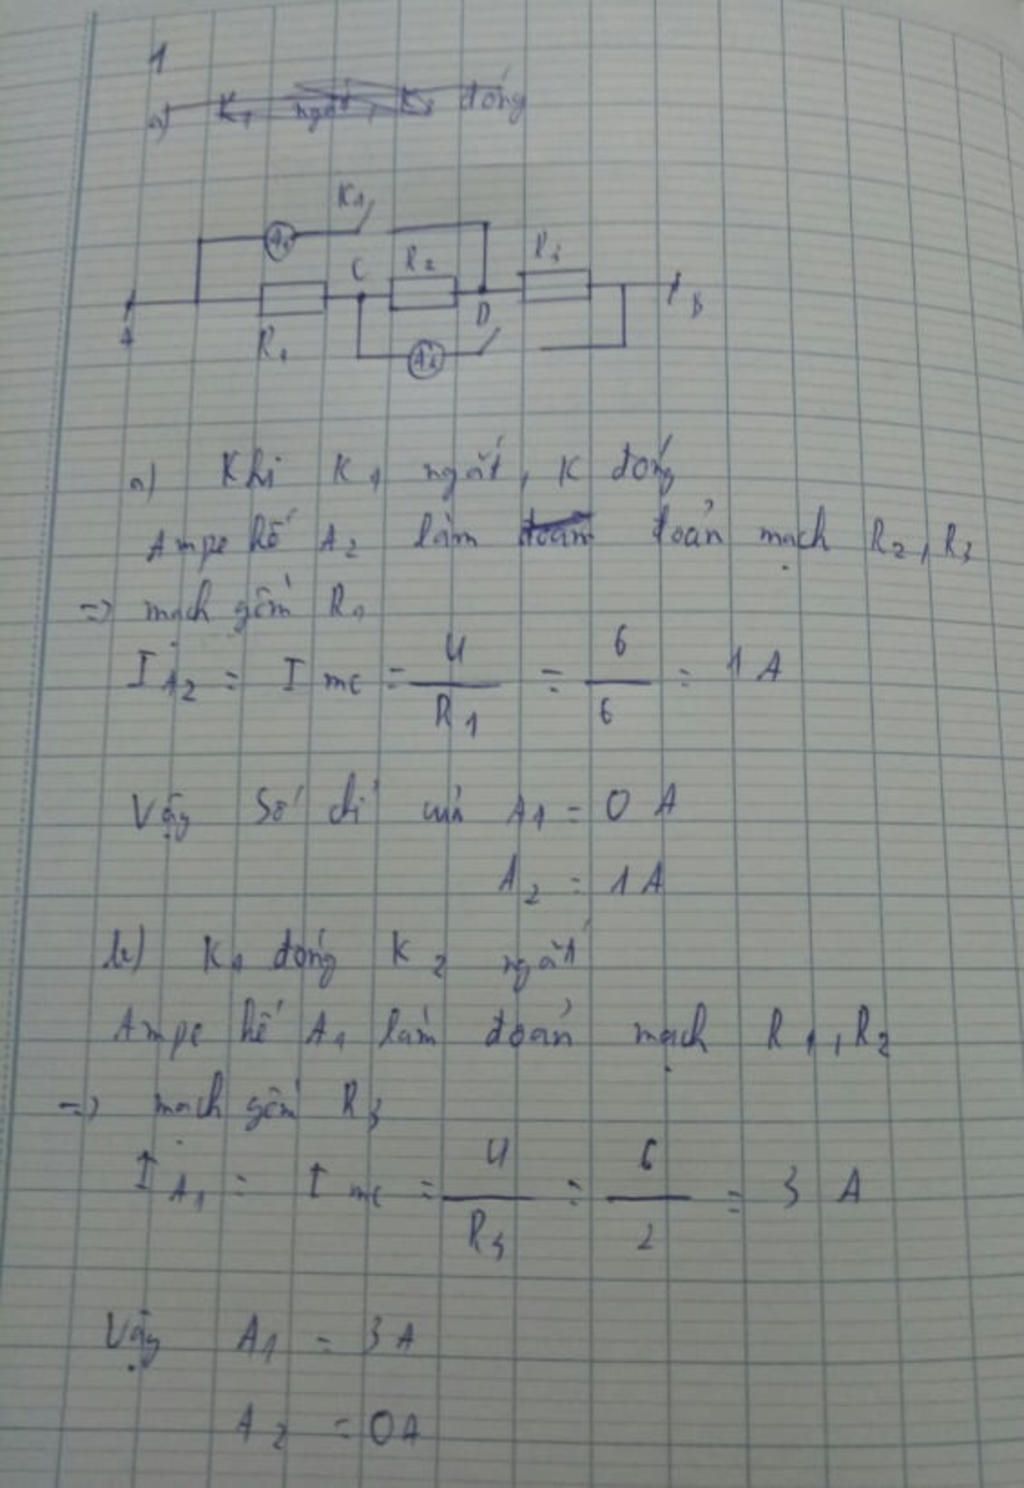 1
a) K1 ngắt, K2 đóng
K1
A1
C
R2
R3
A
R1
D
B
A2
a) Khi K1 ngắt, K đóng
Ampe kế A2 làm đoản đoản mạch R2, R3
=> mạch gồm R1
I A2 = I mc = U / R1 = 6 / 6 = 1 A
Vậy số chỉ của A1 = 0 A
A2 = 1 A
b) K1 đóng K2 ngắt
Ampe kế A1 làm đoản mạch R1, R2
=> mạch gồm R3
I A1 = I mc = U / R3 = 6 / 2 = 3 A
Vậy A1 = 3 A
A2 = 0 A